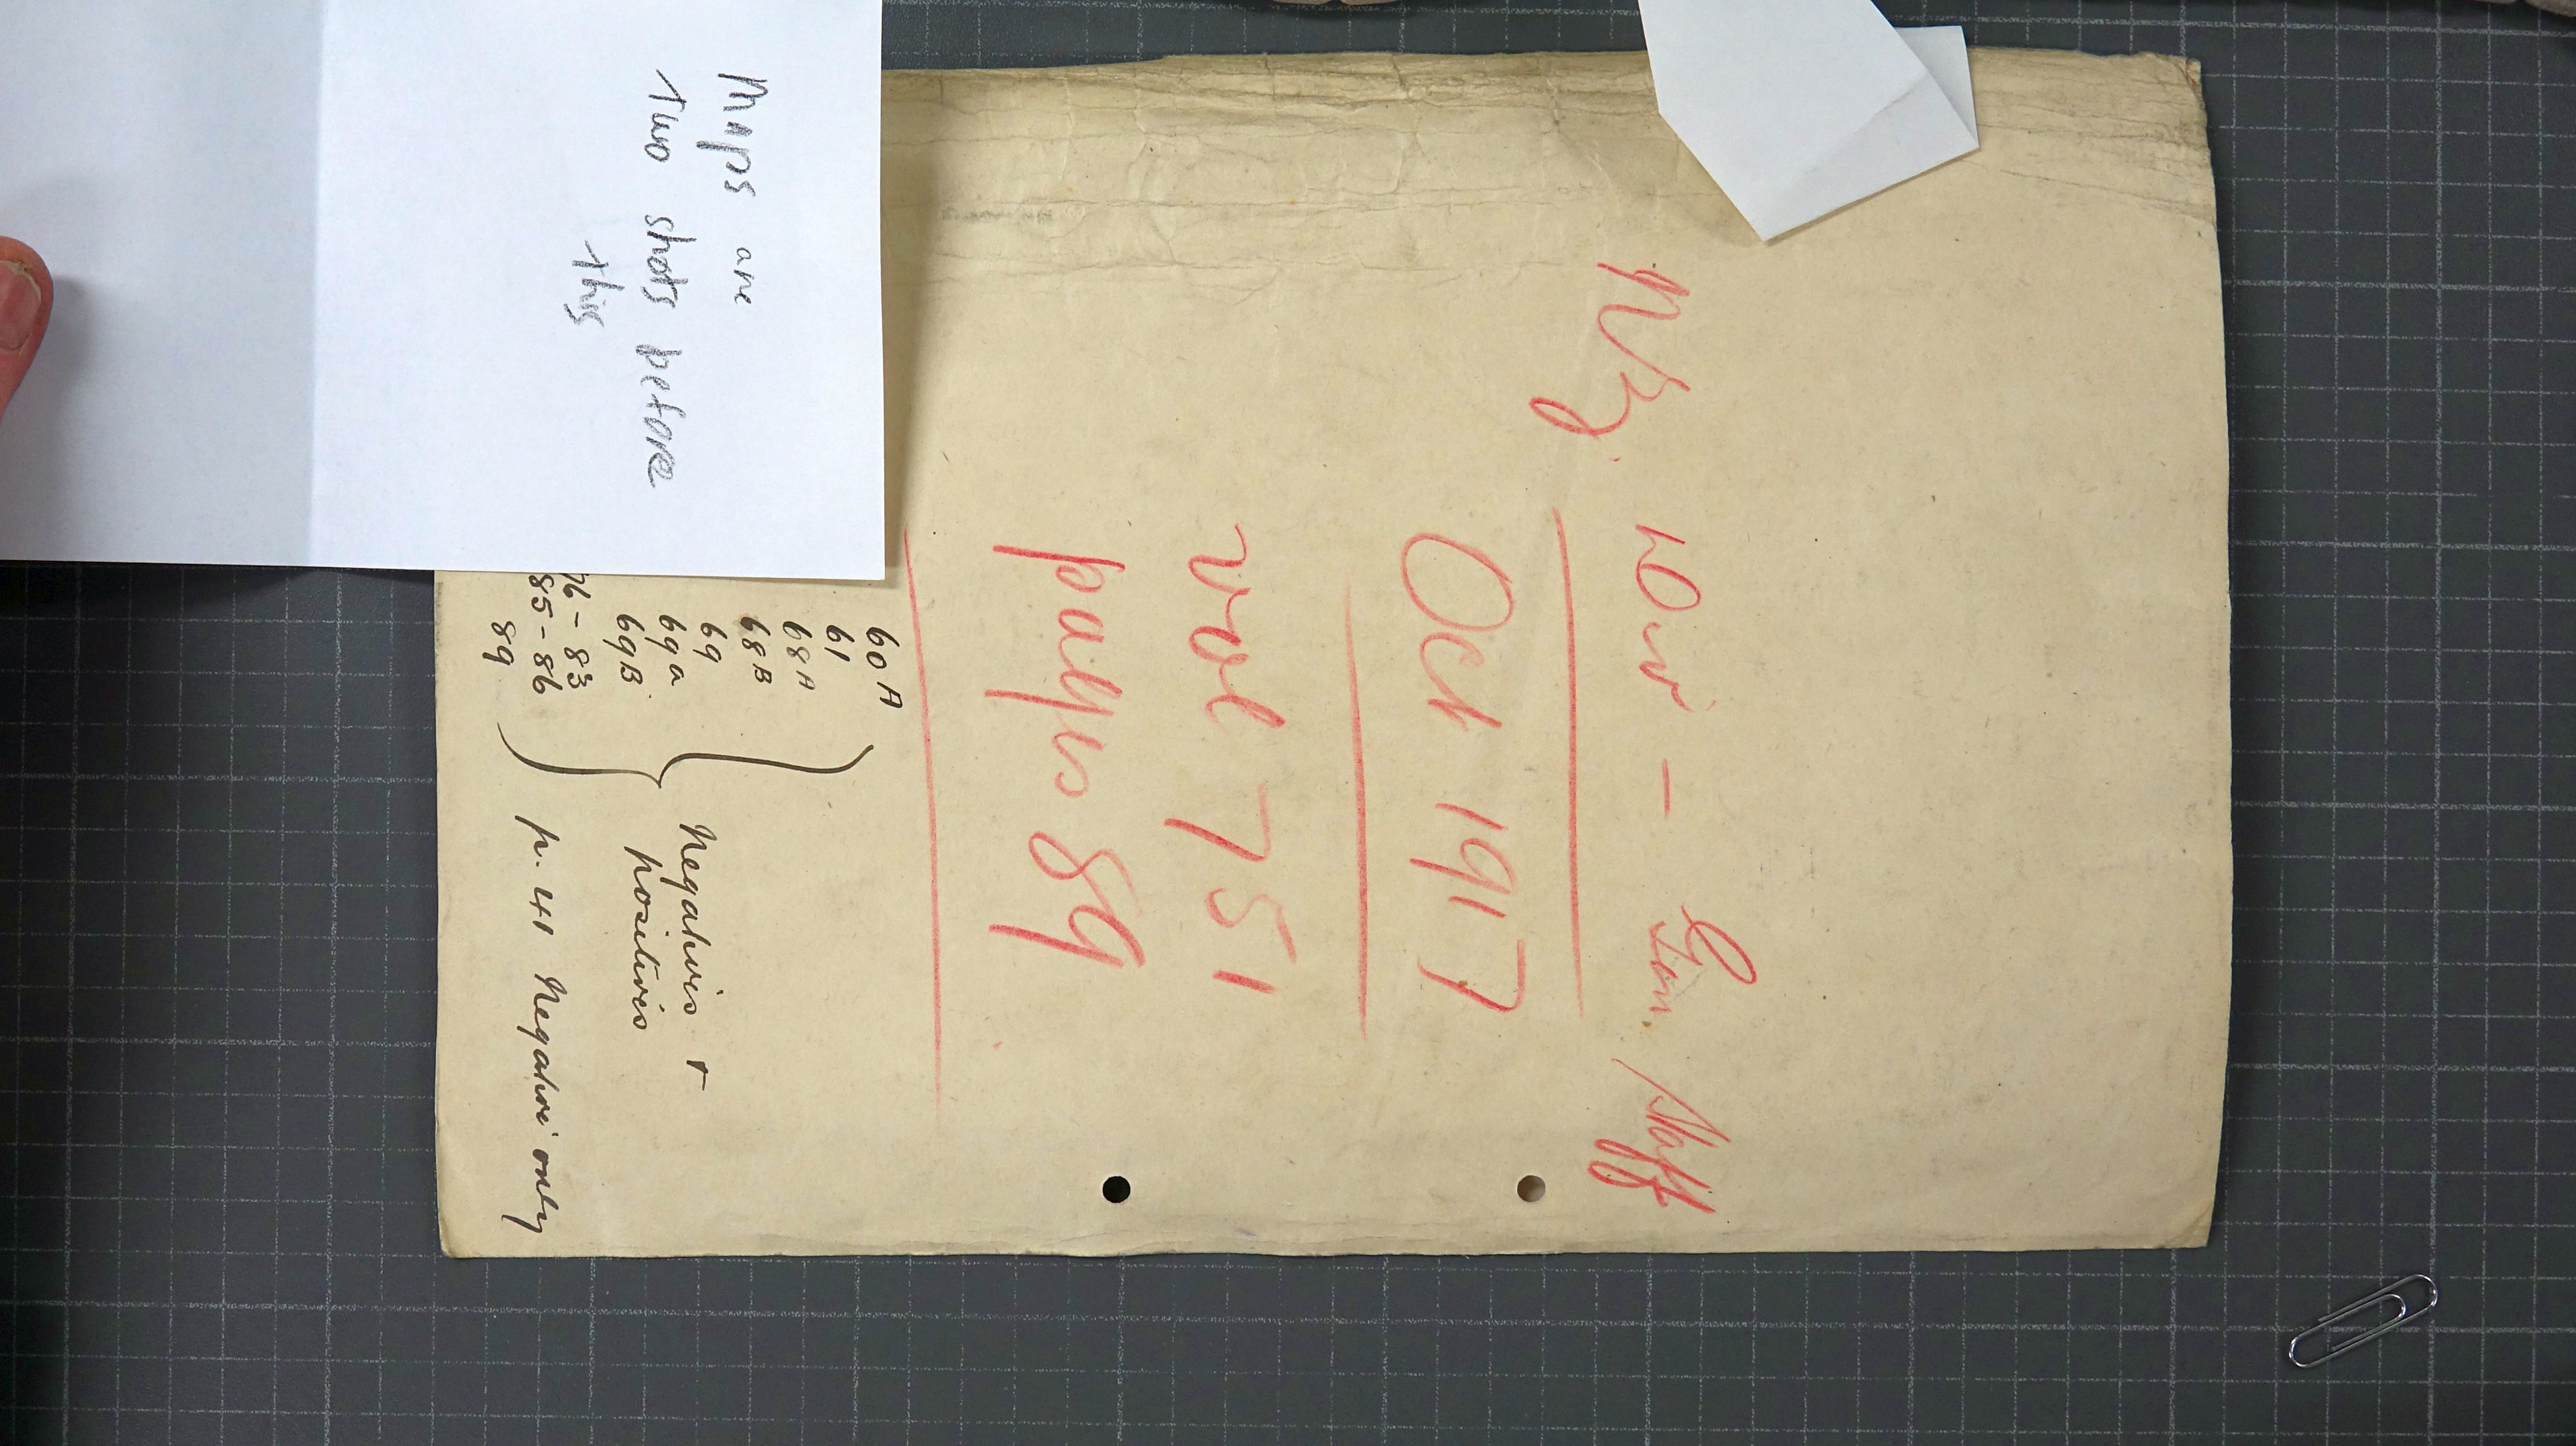 Maps are
two shots before
this
War - Gen. Staff
Oct 1917
vol 751
pages 89
60A
61
68A
68B
69
69a
69B
76 - 83
85 - 86
89
Negatives +
positives
p. 41 Negative only